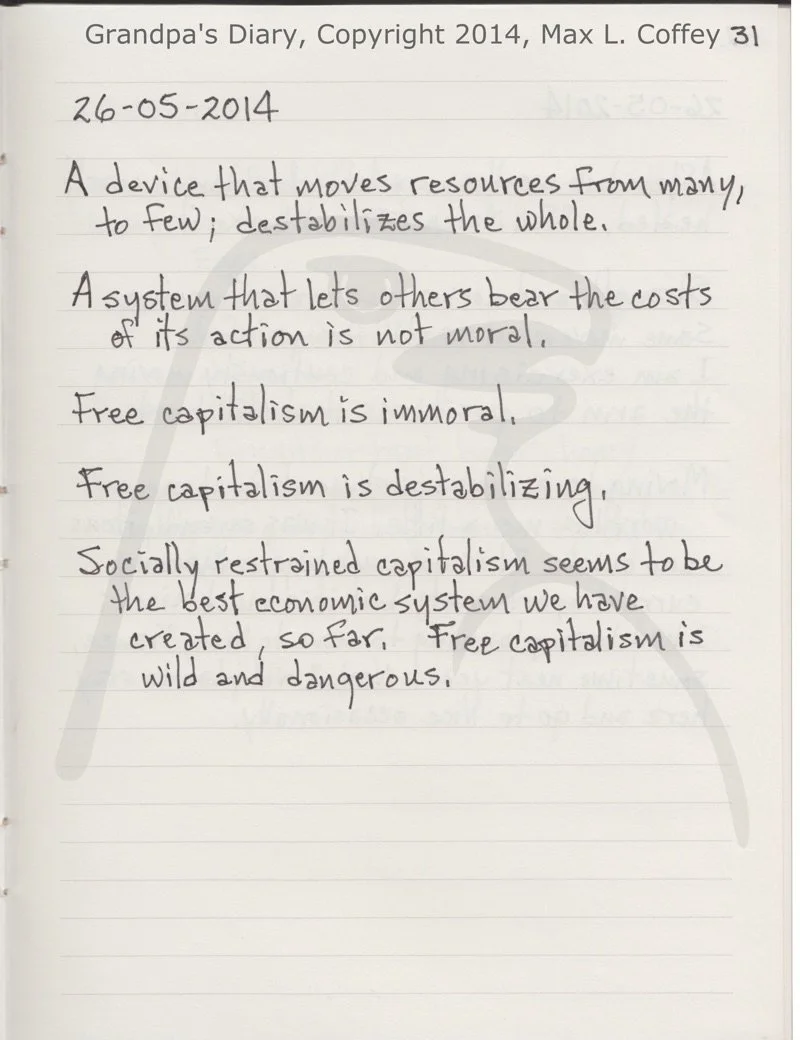 Grandpa's Diary, Copyright 2014, Max L. Coffey 31
26-05-2014
A device that moves resources from many,
to few; destabilizes the whole.
A system that lets others bear the costs
of its action is not moral.
Free capitalism is immoral.
Free capitalism is destabilizing.
Socially restrained capitalism seems to be
the best economic system we have
created, so far. Free capitalism is
wild and dangerous.